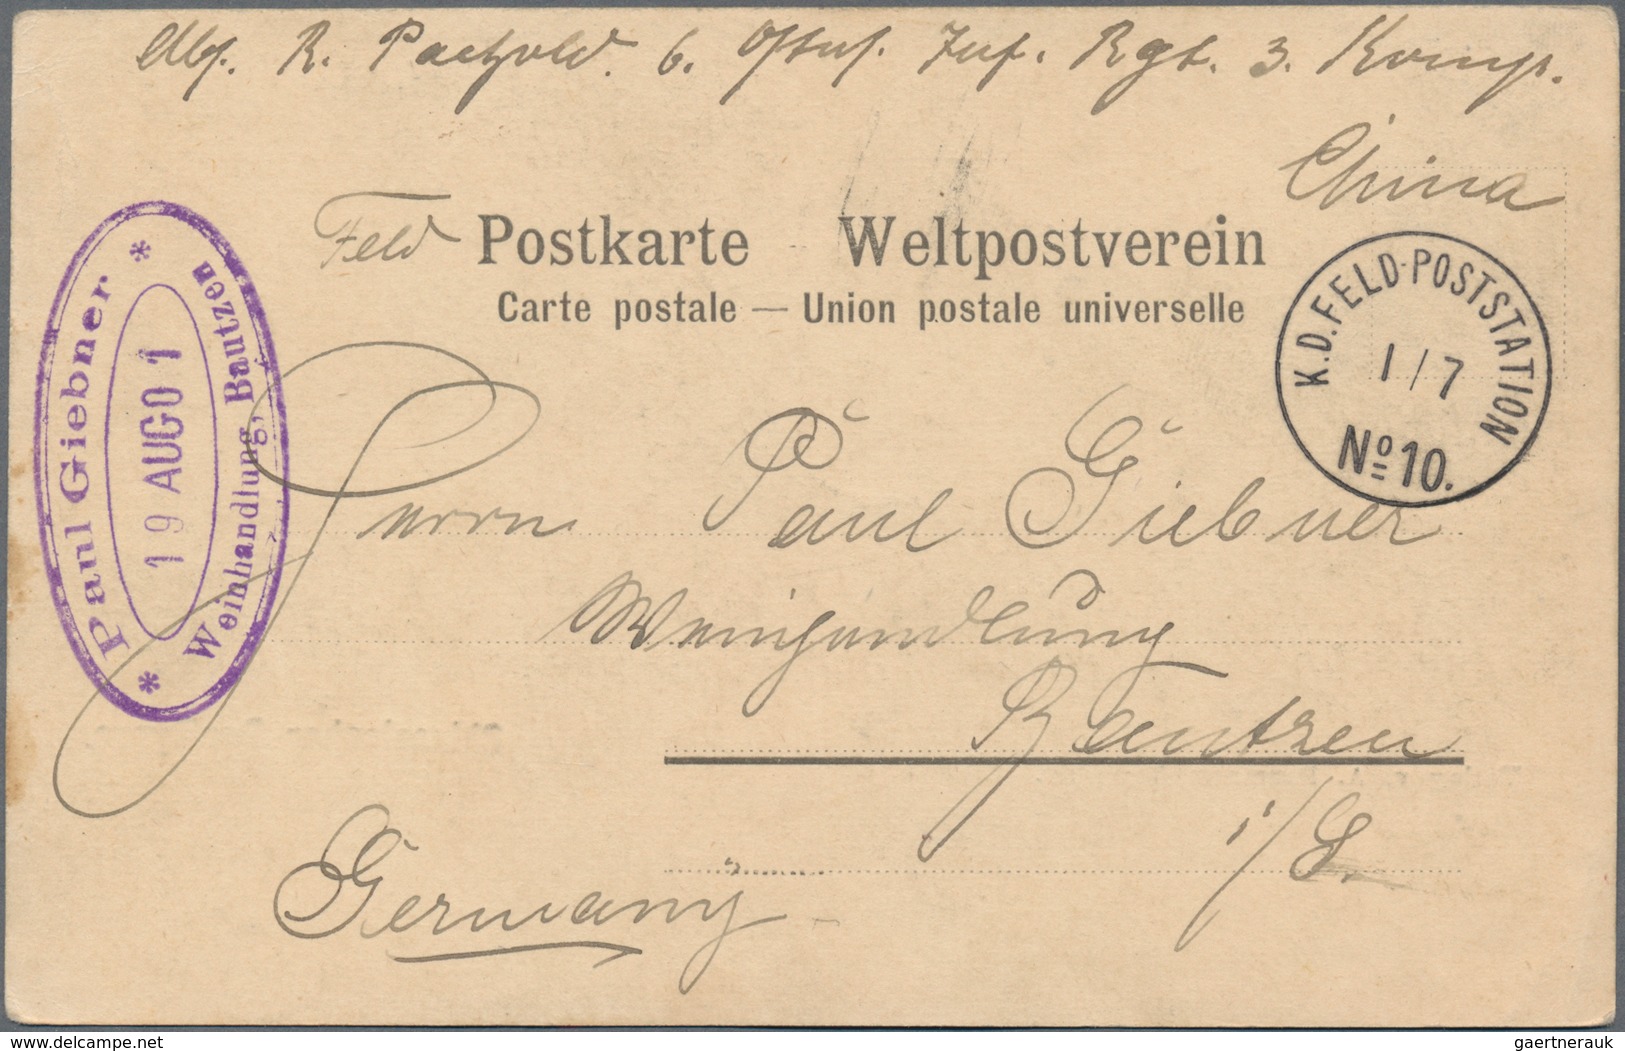 Abs. R. Paetzold. 6. Ostas. Inf. Rgt. 3. Komp.
China
Feld Postkarte - Weltpostverein
Carte postale — Union postale universelle
K.D. FELD-POSTSTATION
1/7
No 10.
* Paul Giebner *
19 AUG 01
Weinhandlung, Bautzen
Herrn Paul Giebner
Weinhandlung
Bautzen
i/S.
Germany
www.delcampe.net
gaertnerauk